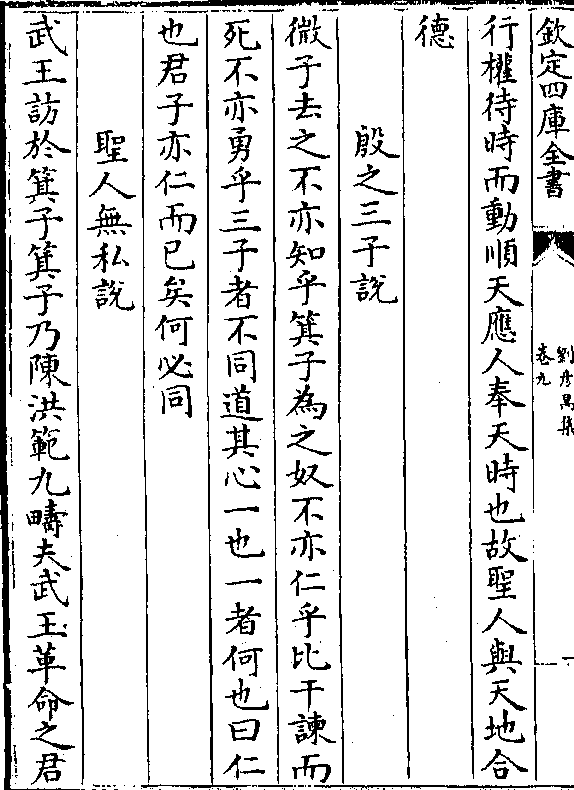 欽定四庫全書
劉彥昺集
卷九
行權待時而動順天應人奉天時也故聖人與天地合
德
殷之三子說
微子去之不亦知乎箕子為之奴不亦仁乎比干諫而
死不亦勇乎三子者不同道其心一也一者何也曰仁
也君子亦仁而已矣何必同
聖人無私說
武王訪於箕子箕子乃陳洪範九疇夫武王革命之君